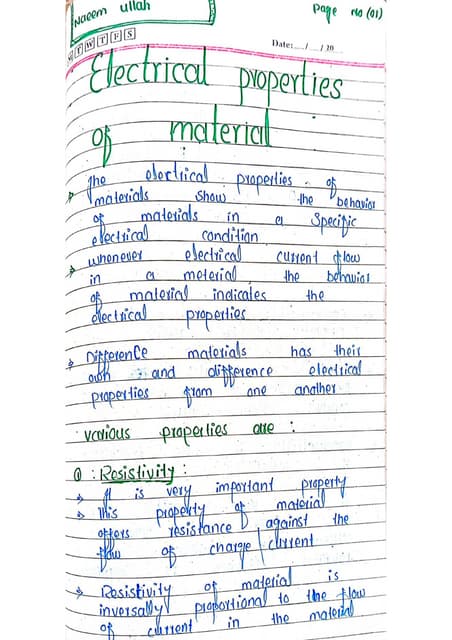 Naeem ullah
Page No (01)
M T W T F S
Date:.../.../20
Electrical properties
of material
The electrical properties of
materials show the behavior
of materials in a specific
electrical condition
whenever electrical current flow
in a meterial the behavior
of material indicates the
electrical properties
Difference materials has their
own and difference electrical
properties from one another
various properties are :
① : Resistivity :
It is very important property
This property of material
offers resistance against the
flow of charge / current
Resistivity of material is
inversally proportional to the flow
of current in the material